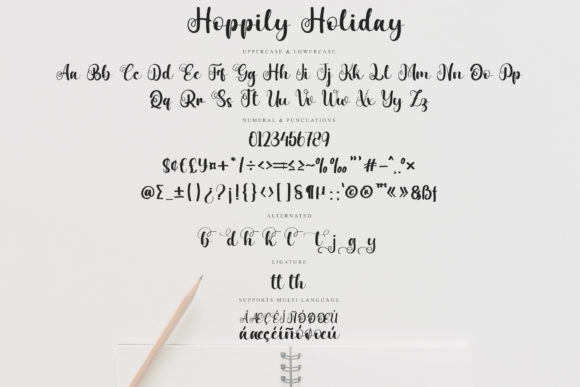 Hoppily Holiday
UPPERCASE & LOWERCASE
Aa Bb Cc Dd Ee Ff Gg Hh Ii Jj Kk Ll Mm Nn Oo Pp
Qq Rr Ss Tt Uu Vv Ww Xx Yy Zz
NUMERAL & PUNCUATIONS
0123456789
$¢€£¥¤+*/÷<>=≤≥~%‰"'#-^¸.°×
@Σ_±()¿?¡!{}‹›[]§¶µ::'©®™«»&ßƒ
ALTERNATED
b d h k l t j g y
LIGATURE
tt th
SUPPORTS MULTI LANGUAGE
áæçéíñóøœú